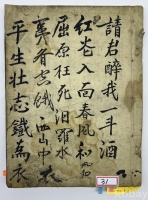 請君醉我一斗酒
入向春風和
屈原枉死汨羅水
夷齊空餓西山
平生壯志鐵為衣
31